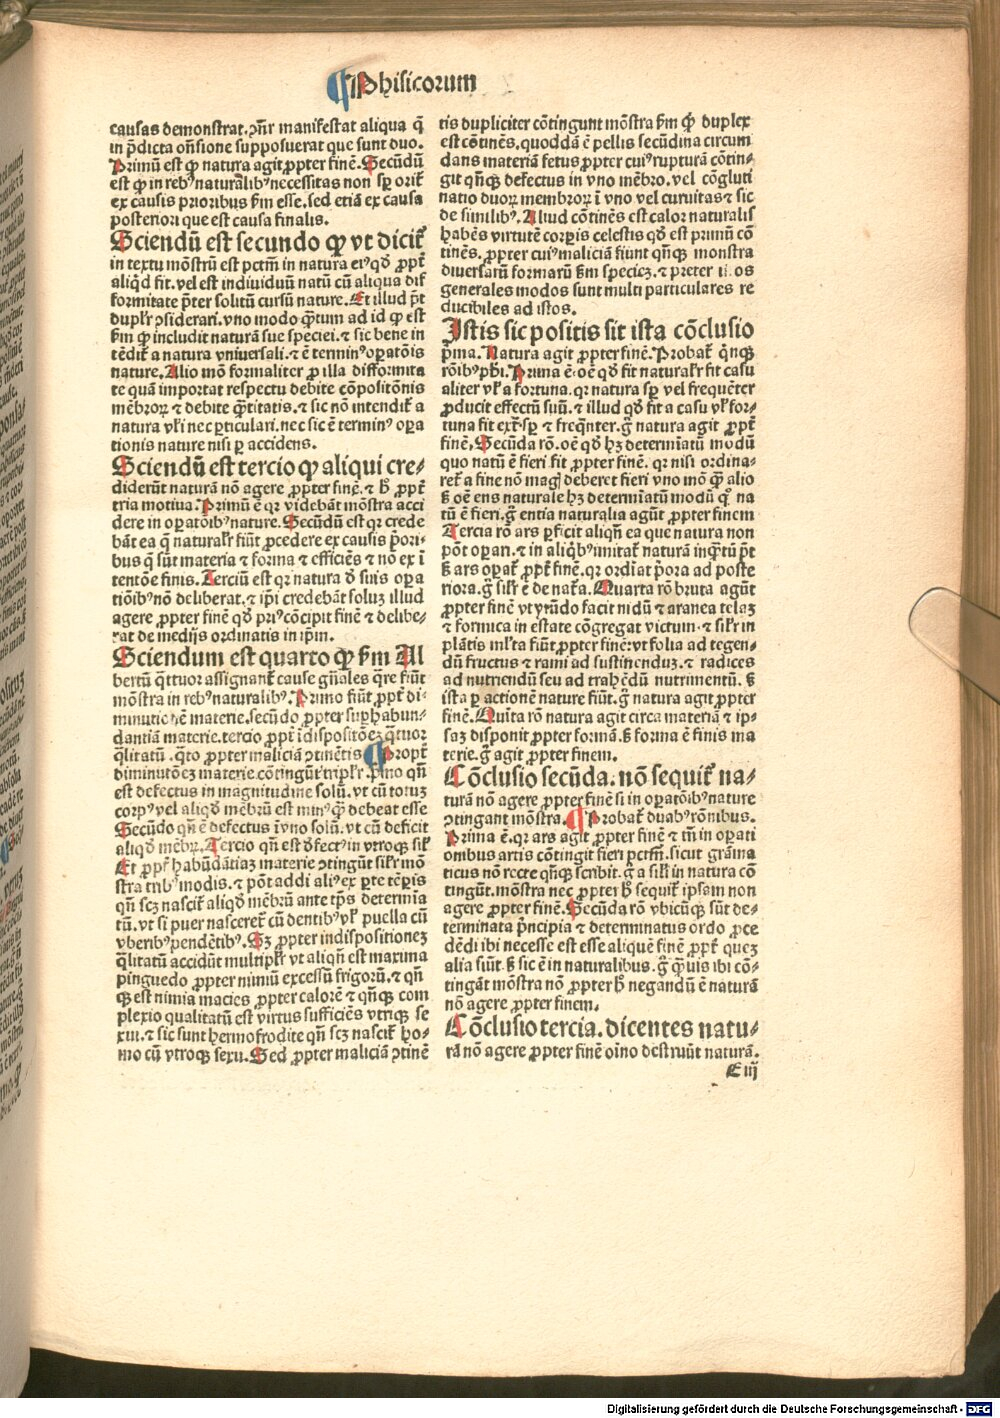 ¶Phisicorum
causas demonstrat. ↄñr manifestat aliqua q̃
in p̄dicta oñsione supposuerat que sunt duo.
Primũ est ꝙ natura agit ꝓpter finẽ. Secũdũ
est ꝙ in rebꝰ naturalibꝰ necessitas non sꝑ orit̃
ex causis prioribus ẜm esse. sed etiã ex causa
posteriori que est causa finalis.
Sciendũ est secundo ꝙ vt dicit̃
in textu mõstrũ est pctm̃ in natura eiꝰ qd̃ ꝓpt̃
aliqd̃ fit. vel est indiuiduũ natũ cũ aliqua dif
formitate p̃ter solitũ cursũ nature. Et illud p̃t
duplr̃ ↄsiderari. vno modo q̃tum ad id ꝙ est
ẜm ꝙ includit naturã sue speciei. ⁊ sic bene in
tẽdit̃ a natura vniuersali. ⁊ ẽ terminꝰ oꝑatõis
nature. Alio mõ formaliter ꝓ illa difformita
te quã importat respectu debite cõpositiõnis
mẽbroꝝ ⁊ debite q̃titatis. ⁊ sic nõ intendit̃ a
natura vl̃i nec ꝑticulari. nec sic ẽ terminꝰ oꝑa
tionis nature nisi ꝑ accidens.
Sciendũ est tercio ꝙ aliqui cre⸗
diderũt naturã nõ agere ꝓpter finẽ. ⁊ h̃ ꝓpt̃
tria motiua. Primũ ẽ qꝛ videbãt mõstra acci
dere in oꝑatõibꝰ nature. Secũdũ est qꝛ crede
bãt ea q̃ naturalr̃ fiũt ꝓcedere ex causis p̃ori⸗
bus q̃ sũt materia ⁊ forma ⁊ efficiẽs ⁊ nõ ex ĩ
tentõe finis. Terciũ est qꝛ natura d̃ suis oꝑa
tiõibꝰ nõ deliberat. ⁊ ip̃i credebãt soluꝫ illud
agere ꝓpter finẽ qd̃ priꝰ cõcipit finẽ ⁊ delibe⸗
rat de medijs ordinatis in ip̃m.
Sciendum est quarto ꝙ ẜm Al
bertũ q̃ttuor assignant̃ cause gñales q̃re fiũt
mõstra in rebꝰ naturalibꝰ. Primo fiũt ꝓpt̃ di⸗
minutionẽ materie. secũdo ꝓpter suꝑhabun⸗
dantiã materie. tercio ꝓpt̃ idispositõeꝫ q̃tuor
q̃litatũ. q̃rto ꝓpter maliciã ↄtinẽtis ¶Propt̃
diminutõeꝫ materie. cõtingũt triplr̃. p̃mo qñ
est defectus in magnitudine solũ. vt cũ totuꝫ
corpꝰ vel aliqd̃ mẽbrũ est minꝰ q̃ꝫ debeat esse
Secũdo qñ ẽ defectus ĩ vno solũ. vt cũ deficit
aliqd̃ mẽbꝝ. Tercio qñ est d̃fectꝰ in vtroqꝫ sil̃
Et ꝓpt̃ habũdãtiaꝫ materie ↄtingũt silr̃ mõ
stra tribꝰ modis. ⁊ põt addi aliꝰ ex ꝑte tẽꝑis
qñ scꝫ nascit̃ aliqd̃ mẽbrũ ante tp̃s determĩa
tũ. vt si puer nasceret̃ cũ dentibꝰ vl̃ puella cũ
vberibꝰ pendẽtibꝰ. Sꝫ ꝓpter indispositioneꝫ
q̃litatũ accidũt multiplr̃ vt aliqñ est maxima
pinguedo ꝓpter nimiũ excessũ frigorũ. ⁊ qñ
qꝫ est nimia macies ꝓpter calorẽ ⁊ qñqꝫ com
plexio qualitatũ est virtus sufficiẽs vtriqꝫ se
xui. ⁊ sic sunt hermofrodite qñ scꝫ nascit̃ ho⸗
mo cũ vtroqꝫ sexu. Sed ꝓpter maliciã ↄtinẽ
tis dupliciter cõtingunt mõstra ẜm ꝙ duplex
est cõtinẽs. quoddã ẽ pellis secũdina circum
dans materiã fetus ꝓpter cuiꝰ rupturã cõtin⸗
git qñqꝫ defectus in vno mẽbro. vel cõgluti
natio duoꝝ membroꝝ ĩ vno vel curuitas ⁊ sic
de similibꝰ. Aliud cõtinẽs est calor naturalis
habẽs virtutẽ corꝑis celestis qd̃ est primũ cõ
tinẽs. ꝓpter cuiꝰ maliciã fiunt qñqꝫ monstra
diuersarũ formarũ ẜm specieꝫ. ⁊ preter os
generales modos sunt multi particulares re
ducibiles ad istos.
Istis sic positis sit ista cõclusio
p̃ma. Natura agit ꝓpter finẽ. Probat̃ q̃nqꝫ
rõibꝰ phi. Prima ẽ. oẽ qd̃ fit naturalr̃ fit casu
aliter vl̃ a fortuna. qꝛ natura sꝑ vel frequẽter
ꝓducit effectũ suũ. ⁊ illud qd̃ fit a casu vl̃ for⸗
tuna fit ext̃ sꝑ ⁊ freq̃nter. g̃ natura agit ꝓpt̃
finẽ. Secũda rõ. oẽ qd̃ hꝫ determĩatũ modũ
quo natũ ẽ fieri fit ꝓpter finẽ. qꝛ nisi ordina⸗
ret̃ a fine nõ mag̃ deberet fieri vno mõ q̃ꝫ alio
ẜ oẽ ens naturale hꝫ determĩatũ modũ qͦ na
tũ ẽ fieri. g̃ entia naturalia agũt ꝓpter finem
Tercia rõ ars ꝑficit aliqñ ea que natura non
põt oꝑari. ⁊ in aliq̃bꝰ imitat̃ naturã inq̃tũ p̃t
ẜ ars oꝑat̃ ꝓpt̃ finẽ. qꝛ ordĩat p̃ora ad poste
riora. g̃ silr̃ ẽ de nat̃a. Quarta rõ bruta agũt
ꝓpter finẽ vt yrũdo facit nidũ ⁊ aranea telaꝫ
⁊ formica in estate cõgregat victum. ⁊ silr̃ in
plãtis ml̃ta fiũt ꝓpter finẽ: vt folia ad tegen⸗
dũ fructus ⁊ rami ad sustinenduꝫ. ⁊ radices
ad nutriendũ seu ad trahẽdũ nutrimentũ. ẜ
ista ꝑ actionẽ nature fiũt. g̃ natura agit ꝓpter
finẽ. Quĩta rõ natura agit circa materiã ⁊ ip⸗
saꝫ disponit ꝓpter formã. ẜ forma ẽ finis ma
terie. g̃ agit ꝓpter finem.
Cõclusio secũda. nõ sequit̃ na⸗
turã nõ agere ꝓpter finẽ si in oꝑatõibꝰ nature
ↄtingant mõstra. ¶Probat̃ duabꝰ rõnibus.
Prima ẽ. qꝛ ars agit ꝓpter finẽ ⁊ tñ in oꝑati
onibus artis cõtingit fieri pctm̃. sicut grãma
ticus nõ recte qñqꝫ scribit. g̃ a sil̃i in natura cõ
tingũt. mõstra nec ꝓpter h̃ sequit̃ ipsam non
agere ꝓpter finẽ. Secũda rõ vbicũqꝫ sũt de⸗
terminata p̃ncipia ⁊ determinatus ordo ꝓce
dẽdi ibi necesse est esse aliquẽ finẽ ꝓpt̃ queꝫ
alia fiũt. ẜ sic ẽ in naturalibus. g̃ q̃ꝫuis ibi cõ⸗
tingãt mõstra nõ ꝓpter h̃ negandũ ẽ naturã
nõ agere ꝓpter finem.
Cõclusio tercia. dicentes natu⸗
rã nõ agere ꝓpter finẽ oĩno destruũt naturã.
E iij
Digitalisierung gefördert durch die Deutsche Forschungsgemeinschaft - DFG